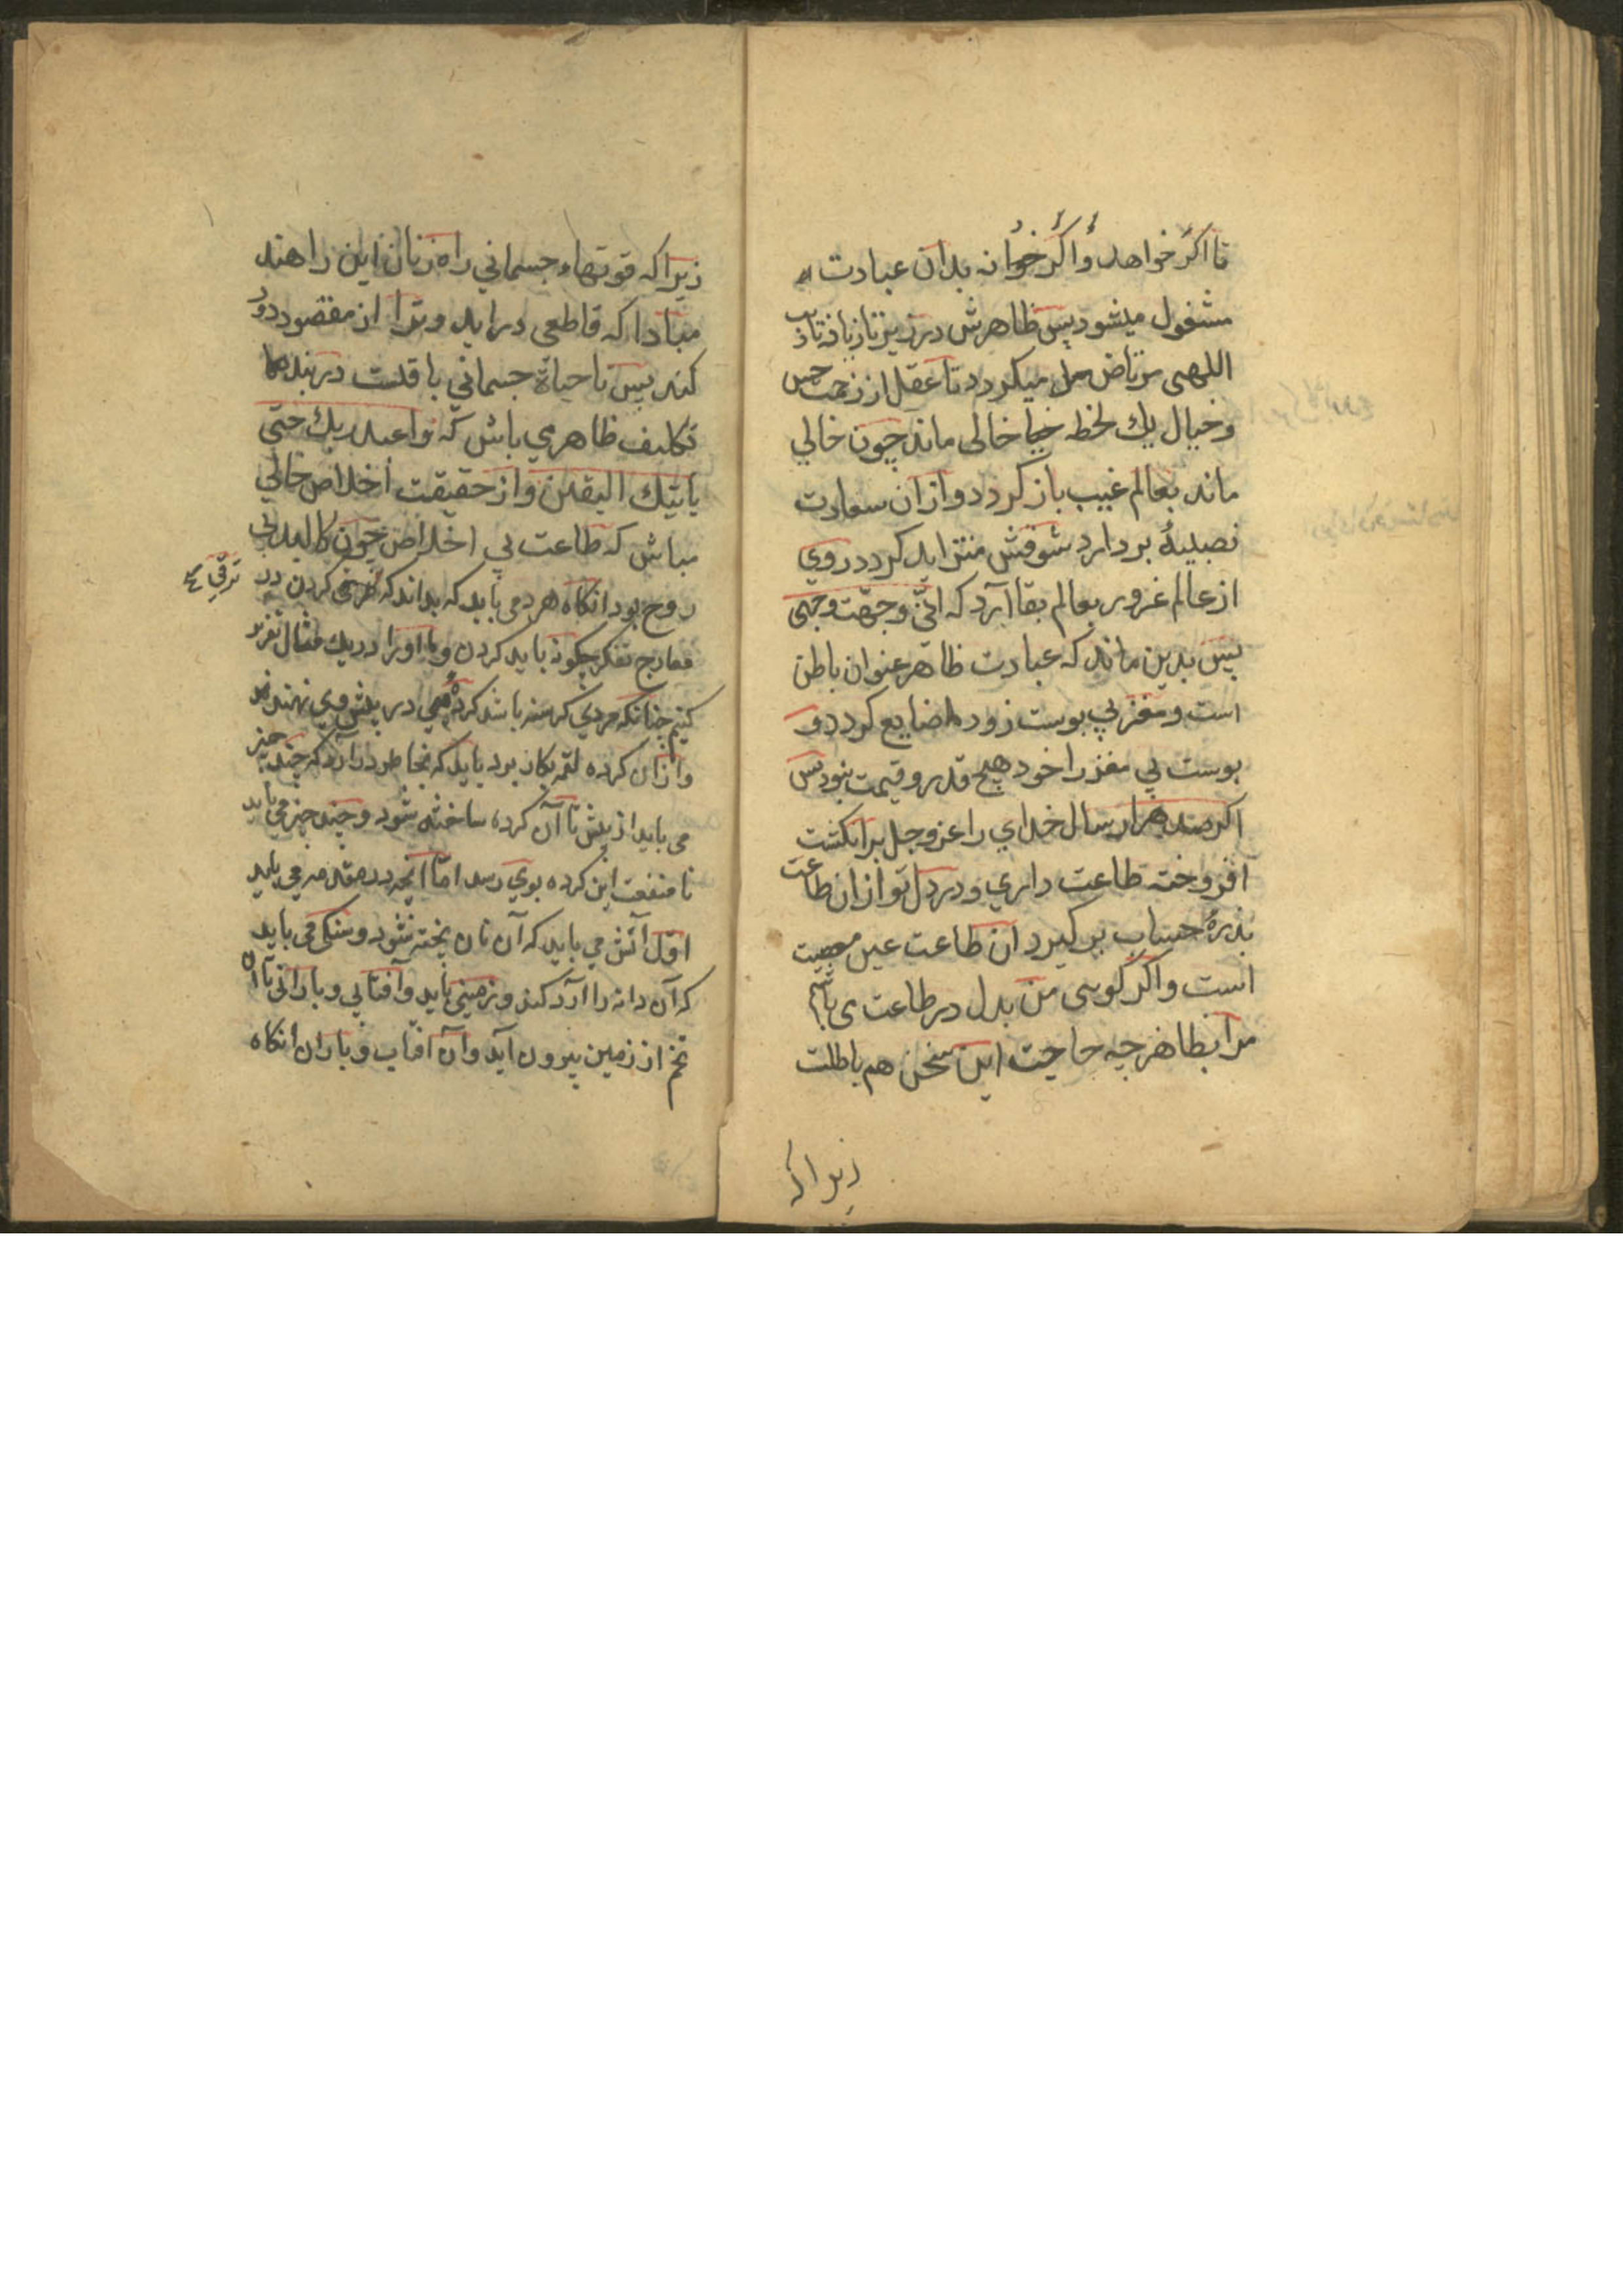 تا اگر خواهد و اگر خوانه بدان عبادت
مشغول میشود پس ظاهرش در زیر تازیانه تادیب
اللهی مرتاض میگردد تا عقل از زحمت حس
و خیال یك لحظه خالی ماند چون خالي
ماند بعالم غیب باز کردد و ازان سعادت
نصیبهٔ بردارد شوقش متزاید کردد روي
از عالم غرور بعالم بقا آرد که انّي وجهّت وجهي
پس بدین ماند که عبادت ظاهر عنوان باطن
است و مغز بي پوست زود ضایع کردد و
پوست بي مغز را خود هیچ قدر و قیمت نبود پس
اکر صد هزار سال خداي را عز وجل بر انکشت
افروخته طاعت داري و در دل تو ازان طاعت
بذرهٔ حساب بر کیرد ان طاعت عین معصیت
است و اکر کویی من بدل در طاعت می باشم
مرا بظاهر چه حاجت این سخن هم باطلت
زیرا که
زیرا که قوتهاء جسماني راه زنان این راهند
مبادا که قاطعی در اید و ترا از مقصود دور
کند پس تا حیاة جسماني با قلت در بند
تکلیف ظاهر می باش که واعبد ربك حتی
یاتیك الیقین و از حقیقت اخلاص خالي
مباش که طاعت بي اخلاص چون کالبد بي
روح بود انکاه هر دمی باید که بداند که ترقی کردن در
ترقي
معارج تفکر چکونه باید کردن و ما اورا در یك مثال تقریر
کنیم چنانکه مردي کرسنه باشد کرده در پیش وي نهند
و ازان کرده لقمه بکار برد باید که بخاطر در آرد که چند چیز
می باید از پیش تا آن کرده ساخته شود و چند چیز می باید
تا منفعت این کرده بوي رسد امّا انچه در مقدمه می باید
اوّل آتش می باید که آن نان پخته شود و سنکی می باید
که آن دانه را آرد کند و زمینی باید و آفتابي و بارانی تا آن
تخم از زمین بیرون آید و آن افتاب و باران انکاه